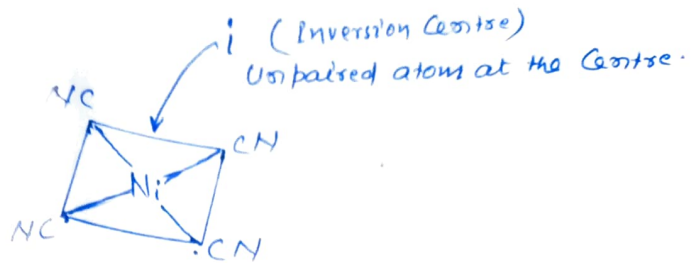 i (Inversion Centre)
Unpaired atom at the Centre.
NC
CN
Ni
NC
CN